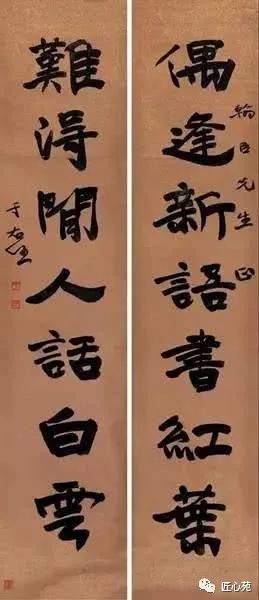 偶逢新語書紅葉
翰臣先生正
難得閒人話白雲
于右任
匠心苑